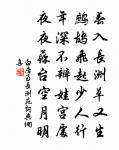 春入長洲草又生
鷓鴣飛起少人行
年深不辨娃宮處
夜夜蘇台空月明
白居易長洲苑詞典網
喜